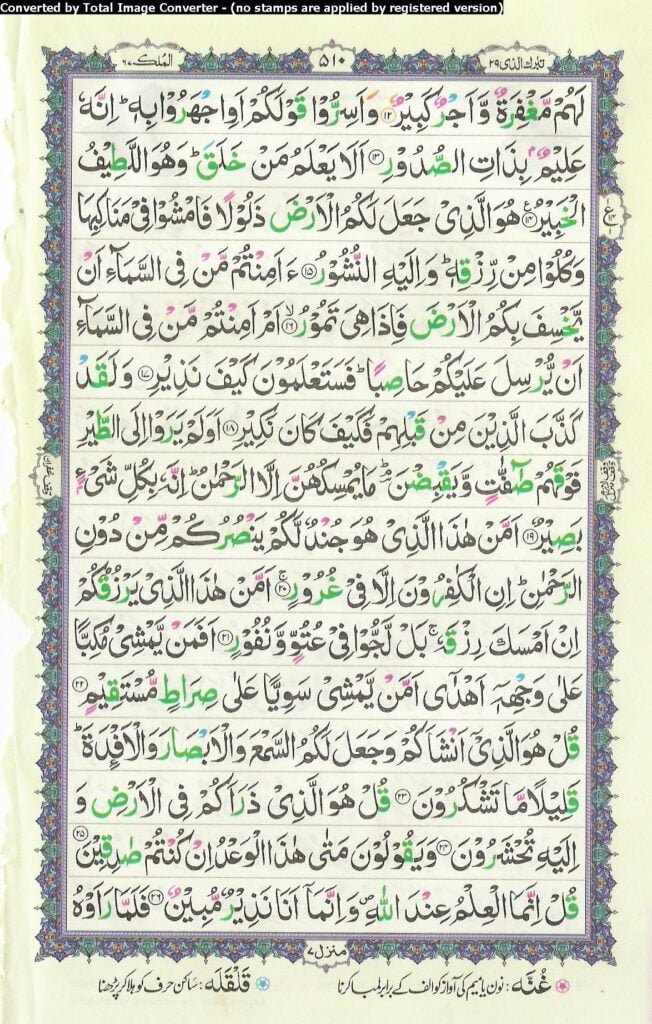 Converted by Total Image Converter - (no stamps are applied by registered version)
تبٰرك الذی ٢٩
٥١٠
الملك ٦٧
لَهُمْ مَّغْفِرَةٌ وَّاَجْرٌ كَبِيْرٌ ۱۲ وَاَسِرُّوْا قَوْلَكُمْ اَوِ اجْهَرُوْا بِهٖ ؕ اِنَّهٗ
عَلِيْمٌۢ بِذَاتِ الصُّدُوْرِ ۱۳ اَلَا يَعْلَمُ مَنْ خَلَقَ ؕ وَهُوَ اللَّطِيْفُ
الْخَبِيْرُ ۱۴ هُوَ الَّذِيْ جَعَلَ لَكُمُ الْاَرْضَ ذَلُوْلًا فَامْشُوْا فِيْ مَنَاكِبِهَا
وَكُلُوْا مِنْ رِّزْقِهٖ ؕ وَاِلَيْهِ النُّشُوْرُ ۱۵ ءَاَمِنْتُمْ مَّنْ فِي السَّمَآءِ اَنْ
يَّخْسِفَ بِكُمُ الْاَرْضَ فَاِذَا هِيَ تَمُوْرُ ۱۶ اَمْ اَمِنْتُمْ مَّنْ فِي السَّمَآءِ
اَنْ يُّرْسِلَ عَلَيْكُمْ حَاصِبًا ؕ فَسَتَعْلَمُوْنَ كَيْفَ نَذِيْرِ ۱۷ وَلَقَدْ
كَذَّبَ الَّذِيْنَ مِنْ قَبْلِهِمْ فَكَيْفَ كَانَ نَكِيْرِ ۱۸ اَوَلَمْ يَرَوْا اِلَى الطَّيْرِ
فَوْقَهُمْ صٰٓفّٰتٍ وَّيَقْبِضْنَ ؔۘ مَا يُمْسِكُهُنَّ اِلَّا الرَّحْمٰنُ ؕ اِنَّهٗ بِكُلِّ شَيْءٍۭ
بَصِيْرٌ ۱۹ اَمَّنْ هٰذَا الَّذِيْ هُوَ جُنْدٌ لَّكُمْ يَنْصُرُكُمْ مِّنْ دُوْنِ
الرَّحْمٰنِ ؕ اِنِ الْكٰفِرُوْنَ اِلَّا فِيْ غُرُوْرٍ ۲۰ اَمَّنْ هٰذَا الَّذِيْ يَرْزُقُكُمْ
اِنْ اَمْسَكَ رِزْقَهٗ ۚ بَلْ لَّجُّوْا فِيْ عُتُوٍّ وَّنُفُوْرٍ ۲۱ اَفَمَنْ يَّمْشِيْ مُكِبًّا
عَلٰى وَجْهِهٖٓ اَهْدٰٓى اَمَّنْ يَّمْشِيْ سَوِيًّا عَلٰى صِرَاطٍ مُّسْتَقِيْمٍ ۲۲
قُلْ هُوَ الَّذِيْٓ اَنْشَاَكُمْ وَجَعَلَ لَكُمُ السَّمْعَ وَالْاَبْصَارَ وَالْاَفْـِٕدَةَ ؕ
قَلِيْلًا مَّا تَشْكُرُوْنَ ۲۳ قُلْ هُوَ الَّذِيْ ذَرَاَكُمْ فِي الْاَرْضِ وَ
اِلَيْهِ تُحْشَرُوْنَ ۲۴ وَيَقُوْلُوْنَ مَتٰى هٰذَا الْوَعْدُ اِنْ كُنْتُمْ صٰدِقِيْنَ ۲۵
قُلْ اِنَّمَا الْعِلْمُ عِنْدَ اللّٰهِ ۪ وَاِنَّمَآ اَنَا نَذِيْرٌ مُّبِيْنٌ ۲۶ فَلَمَّا رَاَوْهُ
منزل ٧
غُنَّه: نون یا میم کی آواز کو الف کے برابر لمبا کرنا
قَلْقَلَه: ساکن حرف کو ہلا کر پڑھنا